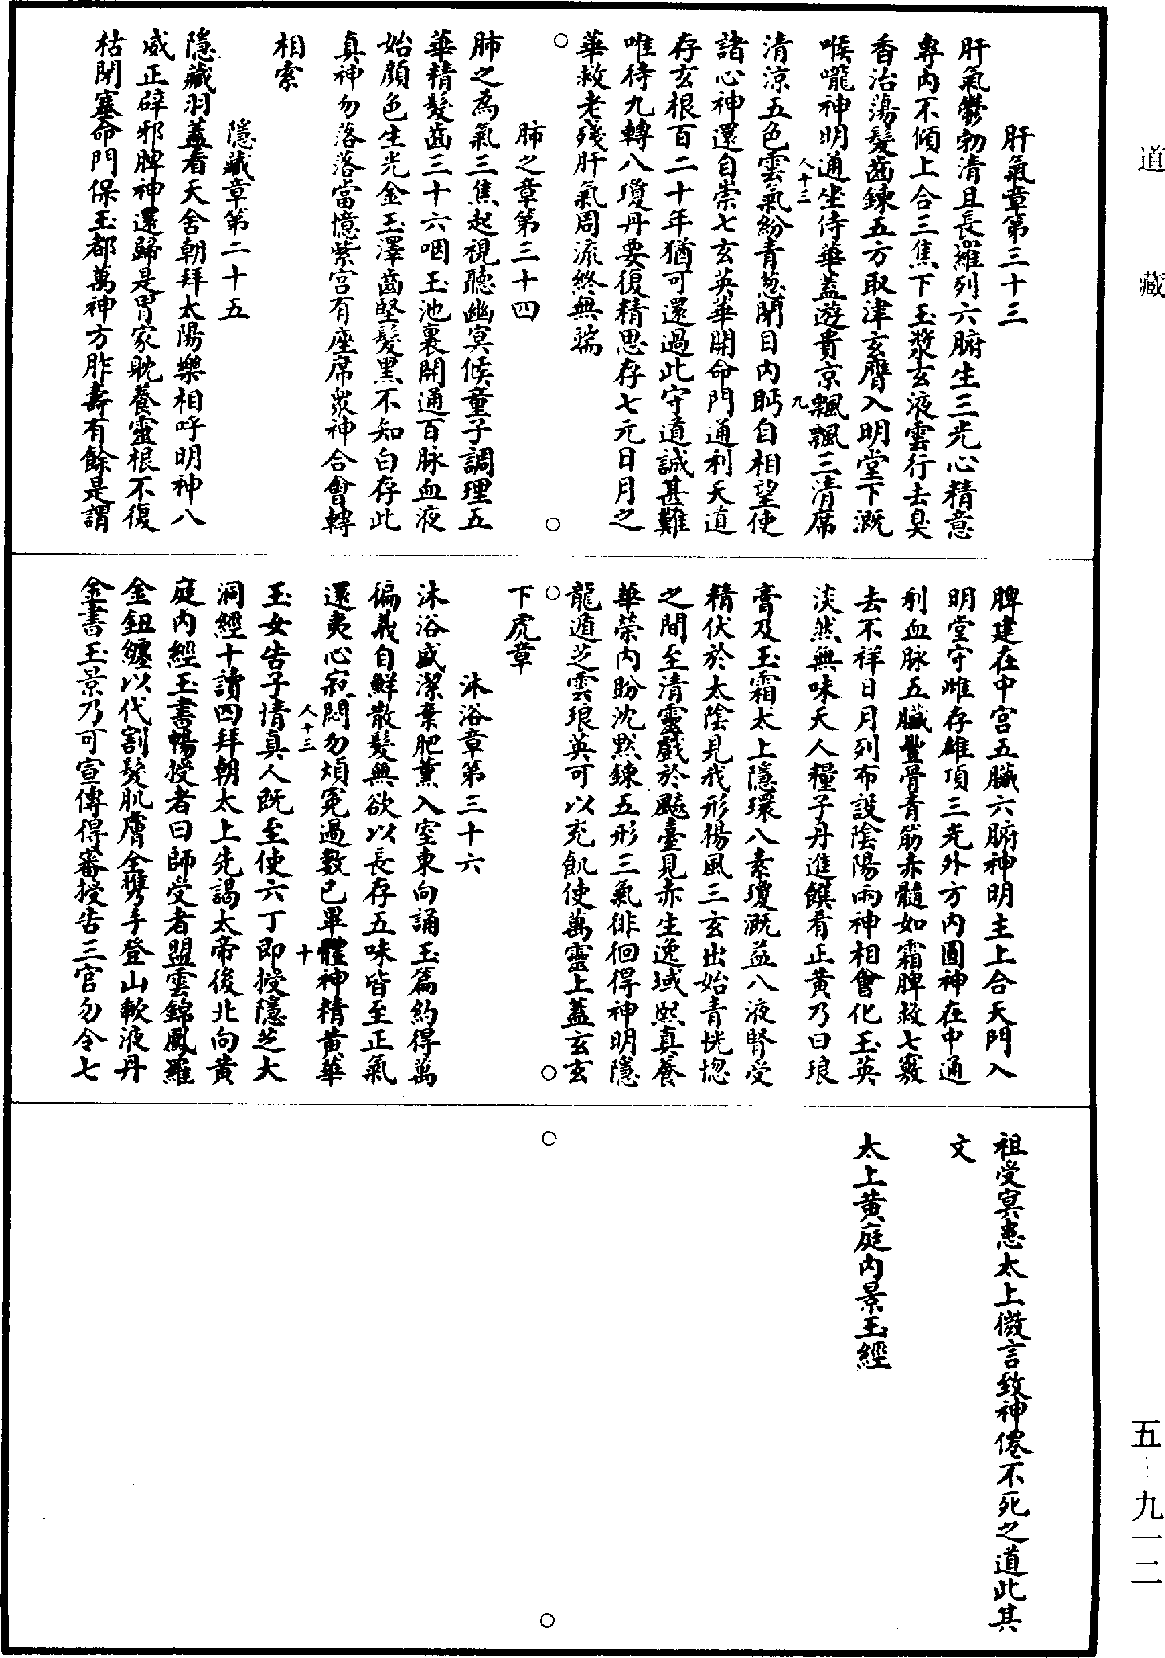 道藏
肝氣章第三十三
肝氣鬱勃清且長羅列六腑生三光心精意
專內不傾上合三焦下玉漿玄液雲行去臭
香治蕩髮齒鍊五方取津玄膺入明堂下溉
喉嚨神明通坐侍華蓋遊貴京飄飄三清席
人十三 九
清涼五色雲氣紛青葱閉目內眄自相望使
諸心神還自崇七玄英華開命門通利天道
存玄根百二十年猶可還過此守道誠甚難
唯待九轉八瓊丹要復精思存七元日月之
華救老殘肝氣周流終無端
肺之章第三十四
肺之為氣三焦起視聽幽冥候童子調理五
華精髮齒三十六咽玉池裏開通百脉血液
始顏色生光金玉澤齒堅髮黑不知白存此
真神勿落落當憶紫宮有座席眾神合會轉
相索
隱藏章第二十五
隱藏羽蓋看天舍朝拜太陽樂相呼明神八
威正辟邪脾神還歸是胃家耽養靈根不復
枯閉塞命門保玉都萬神方胙壽有餘是謂
脾建在中宮五臟六腑神明主上合天門入
明堂守雌存雄頂三光外方內圓神在中通
利血脉五臟豐骨青筋赤髓如霜脾救七竅
去不祥日月列布設陰陽兩神相會化玉英
淡然無味天人糧子丹進饌肴正黃乃曰琅
膏及玉霜太上隱環八素瓊溉益八液腎受
精伏於太陰見我形揚風三玄出始青恍惚
之間至清靈戲於飈臺見赤生逸域熙真養
華榮內盼沈默鍊五形三氣徘徊得神明隱
龍遁芝雲琅英可以充飢使萬靈上蓋玄玄
下虎章
沐浴章第三十六
沐浴盛潔棄肥薰入室東向誦玉篇約得萬
徧義自鮮散髮無欲以長存五味皆至正氣
還夷心寂悶勿煩冤過數已畢體神精黃華
人十三 十
玉女告子情真人既至使六丁即授隱芝大
洞經十讀四拜朝太上先謁太帝後北向黃
庭內經玉書暢授者曰師受者盟雲錦鳳羅
金鈕纏以代割髮肌膚全攜手登山歃液丹
金書玉景乃可宣傳得審授告三官勿令七
祖受冥患太上微言致神僊不死之道此其
文
太上黃庭內景玉經
五—九一二